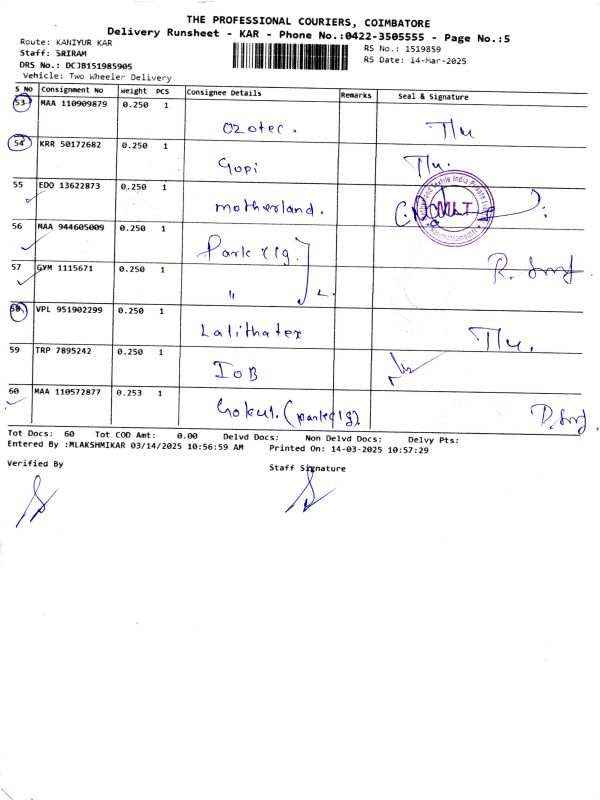 THE PROFESSIONAL COURIERS, COIMBATORE
Delivery Runsheet - KAR - Phone No.:0422-3505555 - Page No.:5
Route: KANIYUR KAR
Staff: SRIRAM
DRS No.: DCJB151985905
Vehicle: Two Wheeler Delivery
RS No.: 1519859
RS Date: 14-Mar-2025
S No Consignment No Weight PCS Consignee Details Remarks Seal & Signature
53 MAA 110909879 0.250 1
Ozotec.
54 KRR 50172682 0.250 1
Gopi
55 EDO 13622873 0.250 1
motherland.
56 MAA 944605009 0.250 1
57 GYM 1115671 0.250 1
"
58 VPL 951902299 0.250 1
Lalithatex
59 TRP 7895242 0.250 1
IOB
60 MAA 110572877 0.253 1
Gokul.
Tot Docs: 60 Tot COD Amt: 0.00 Delvd Docs: Non Delvd Docs: Delvy Pts:
Entered By :MLAKSHMIKAR 03/14/2025 10:56:59 AM Printed On: 14-03-2025 10:57:29
Verified By
Staff Signature